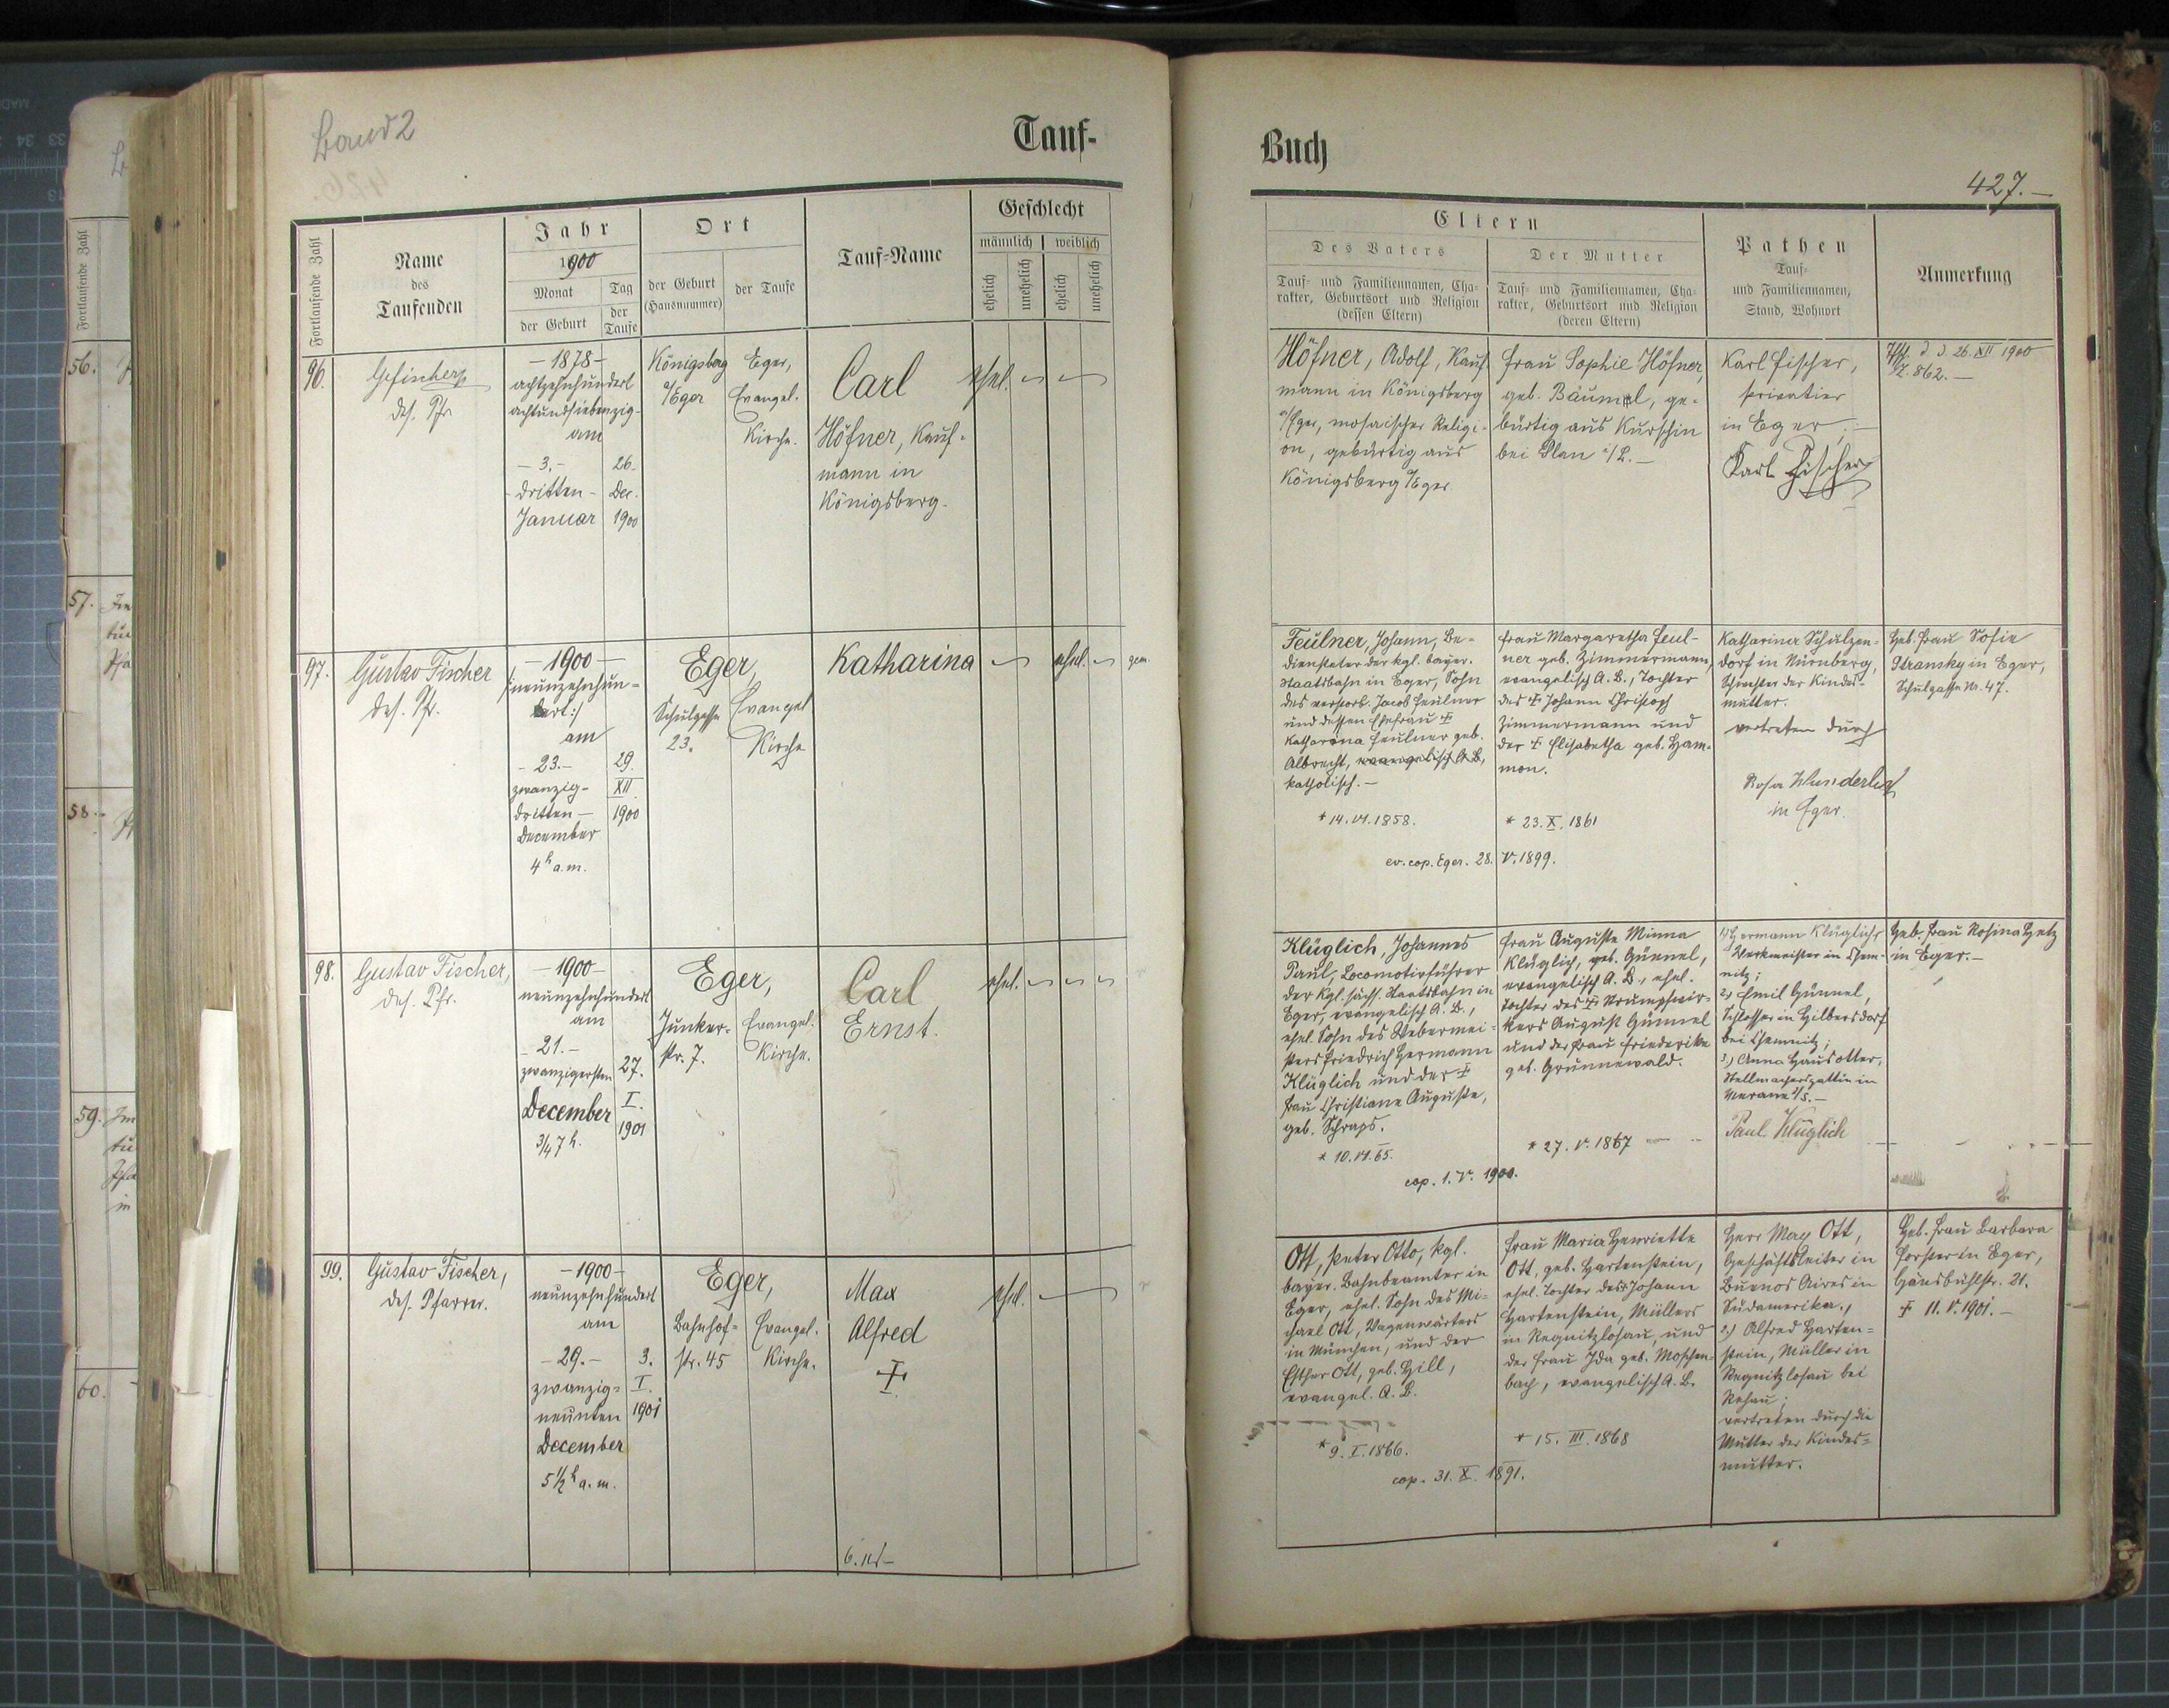 Band 2
Tauf-
Fortlaufende Zahl
Name
des
Taufenden
Jahr
1900
Monat
der Geburt
Tag
der
Taufe
Ort
der Geburt
(Hausnummer)
der Taufe
Tauf-Name
Geschlecht
männlich
weiblich
ehelich
unehelich
ehelich
unehelich
96.
GFischer
des. Pfr.
- 1878 -
achtzehnhundert
achtundsiebenzig-
am
- 3. -
dritten -
Januar
26.
Dec.
1900
Königsberg
a/Eger
Eger,
Evangel.
Kirche.
Carl
Höfner, Kauf-
mann in
Königsberg.
ehel.
97.
Gustav Fischer
des. Pfr.
- 1900 -
/:neunzehnhun-
dert:/
am
- 23. -
zwanzig-
dritten -
December
4h a.m.
29.
XII.
1900
Eger,
Schulgasse
23.
Evangel.
Kirche
Katharina
ehel.
gem.
98.
Gustav Fischer,
des. Pfr.
- 1900 -
neunzehnhundert
am
- 21. -
zwanzigersten
December
3/4 7 h.
27.
I.
1901
Eger,
Junker-
str. 7.
Evangel.
Kirche.
Carl
Ernst.
ehel.
99.
Gustav Fischer,
des. Pfarrer.
- 1900 -
neunzehnhundert
am
- 29. -
zwanzig-
neunten
December
5 1/2 h a.m.
3.
I.
1901
Eger,
Bahnhof-
str. 45
Evangel.
Kirche.
Max
Alfred
ehel.
Buch
427.-
Eltern
Des Vaters
Tauf- und Familiennamen, Cha-
rakter, Geburtsort und Religion
(dessen Eltern)
Der Mutter
Tauf- und Familiennamen, Cha-
rakter, Geburtsort und Religion
(deren Eltern)
Pathen
Tauf-
und Familiennamen,
Stand, Wohnort
Anmerkung
Höfner, Adolf, Kauf-
mann in Königsberg
a/Eger, mosaischer Religi-
on, gebürtig aus
Königsberg a/Eger
Frau Sophie Höfner,
geb. Bäuml, ge-
bürtig aus Kurschin
bei Plan
Karl Fischer,
Privatier
in Eger.
Karl Fischer
d. d. 26. XII 1900
Z. 862. -
Feulner, Johann, Be-
diensteter der kgl. bayer.
Staatsbahn in Eger, Sohn
des verstorb. Jacob Feulner
und dessen Ehefrau †
Katharina Feulner geb.
Albrecht, evangelisch A. B.,
katholisch. -
* 14. VI. 1858.
Frau Margaretha Feul-
ner geb. Zimmermann,
evangelisch A. B., Tochter
des † Johann Christoph
Zimmermann und
der † Elisabetha geb. Ham-
mon.
* 23. X. 1861
ev. cop. Eger. 28. V. 1899.
Katharina Schülzen-
dorf in Nürnberg,
Schwester der Kindes-
mutter.
vertreten durch
Rosa Wunderlich
in Eger.
Heb. Frau Sofie
Stransky in Eger,
Schulgasse Nr. 47.
Klüglich, Johannes
Paul, Locomotivführer
der kgl. sächs. Staatsbahn in
Eger, evangelisch A. B.,
ehel. Sohn des Webermei-
sters Friedrich Hermann
Klüglich und der †
Frau Christiane Auguste,
geb. Schraps.
* 10. VI. 65.
Frau Auguste Minna
Klüglich, geb. Günnel,
evangelisch A. B., ehel.
Tochter des † Strumpfwir-
kers August Günnel
und der Frau Friederike
geb. Grünnewald.
* 27. V. 1867
cop. 1. V. 1900.
1) Hermann Klüglich,
Werkmeister in Chem-
nitz;
2) Emil Günnel,
Schlosser in Hilbersdorf
bei Chemnitz;
3) Anna Hausotter,
Stellmachersgattin in
Merane i/S. -
Paul Klüglich
Heb. Frau Rosina Hetz
in Eger. -
Ott, Peter Otto, kgl.
bayer. Bahnbeamter in
Eger, ehel. Sohn des Mi-
chael Ott, Wagenwärters
in München, und der
Esther Ott, geb. Hill,
evangel. A. B.
* 9. I. 1866.
Frau Maria Henriette
Ott, geb. Hartenstein,
ehel. Tochter des Johann
Hartenstein, Müllers
in Regnitzlosau, und
der Frau Ida geb. Moschen-
bach, evangelisch A. B.
* 15. III. 1868
cop. 31. X. 1891.
Herr Max Ott,
Geschäftsleiter in
Buenos Aires in
Südamerika.,
2.) Alfred Harten-
stein, Müller in
Regnitzlosau bei
Rehau;
vertreten durch die
Mutter der Kindes-
mutter.
Heb. Frau Barbara
Forster in Eger,
Gänsbühlstr. 21.
† 11. V. 1901. -
56.
57.
58.
59.
60.